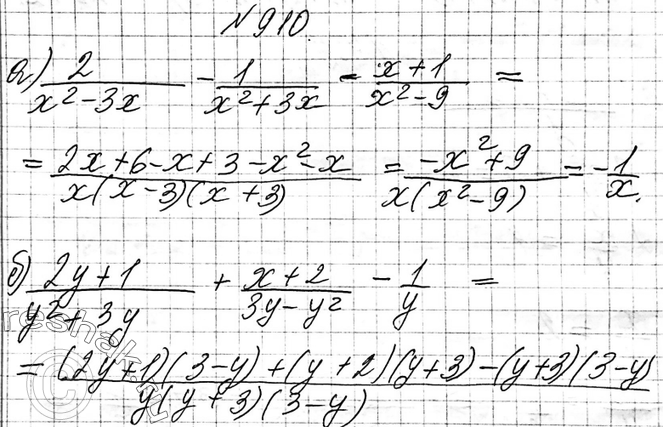 №910.
а) 2/(x²-3x) - 1/(x²+3x) - (x+1)/(x²-9) =
= (2x+6-x+3-x²-x)/(x(x-3)(x+3)) = (-x²+9)/(x(x²-9)) = -1/x.
б) (2y+1)/(y²+3y) + (x+2)/(3y-y²) - 1/y =
= ((2y+1)(3-y)+(y+2)(y+3)-(y+3)(3-y))/(y(y+3)(3-y))